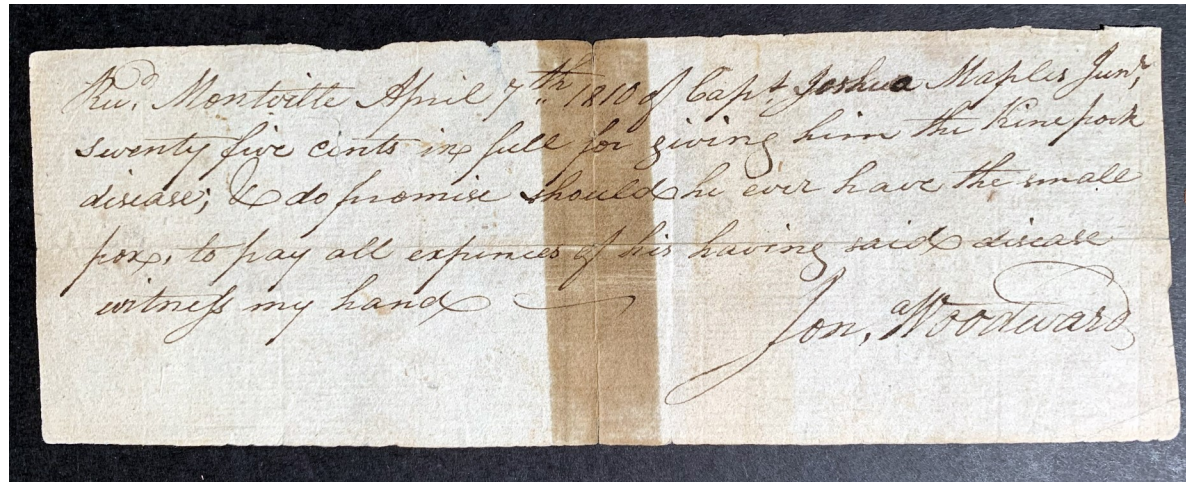 Recd. Montville April 7th 1810 of Capt. Joshua Maples Junr,
swenty five cents in full for giving him the Kine pock
disease; & do promise should he ever have the small
pox, to pay all expences of his having said disease
witness my hand
Jona. Woodward